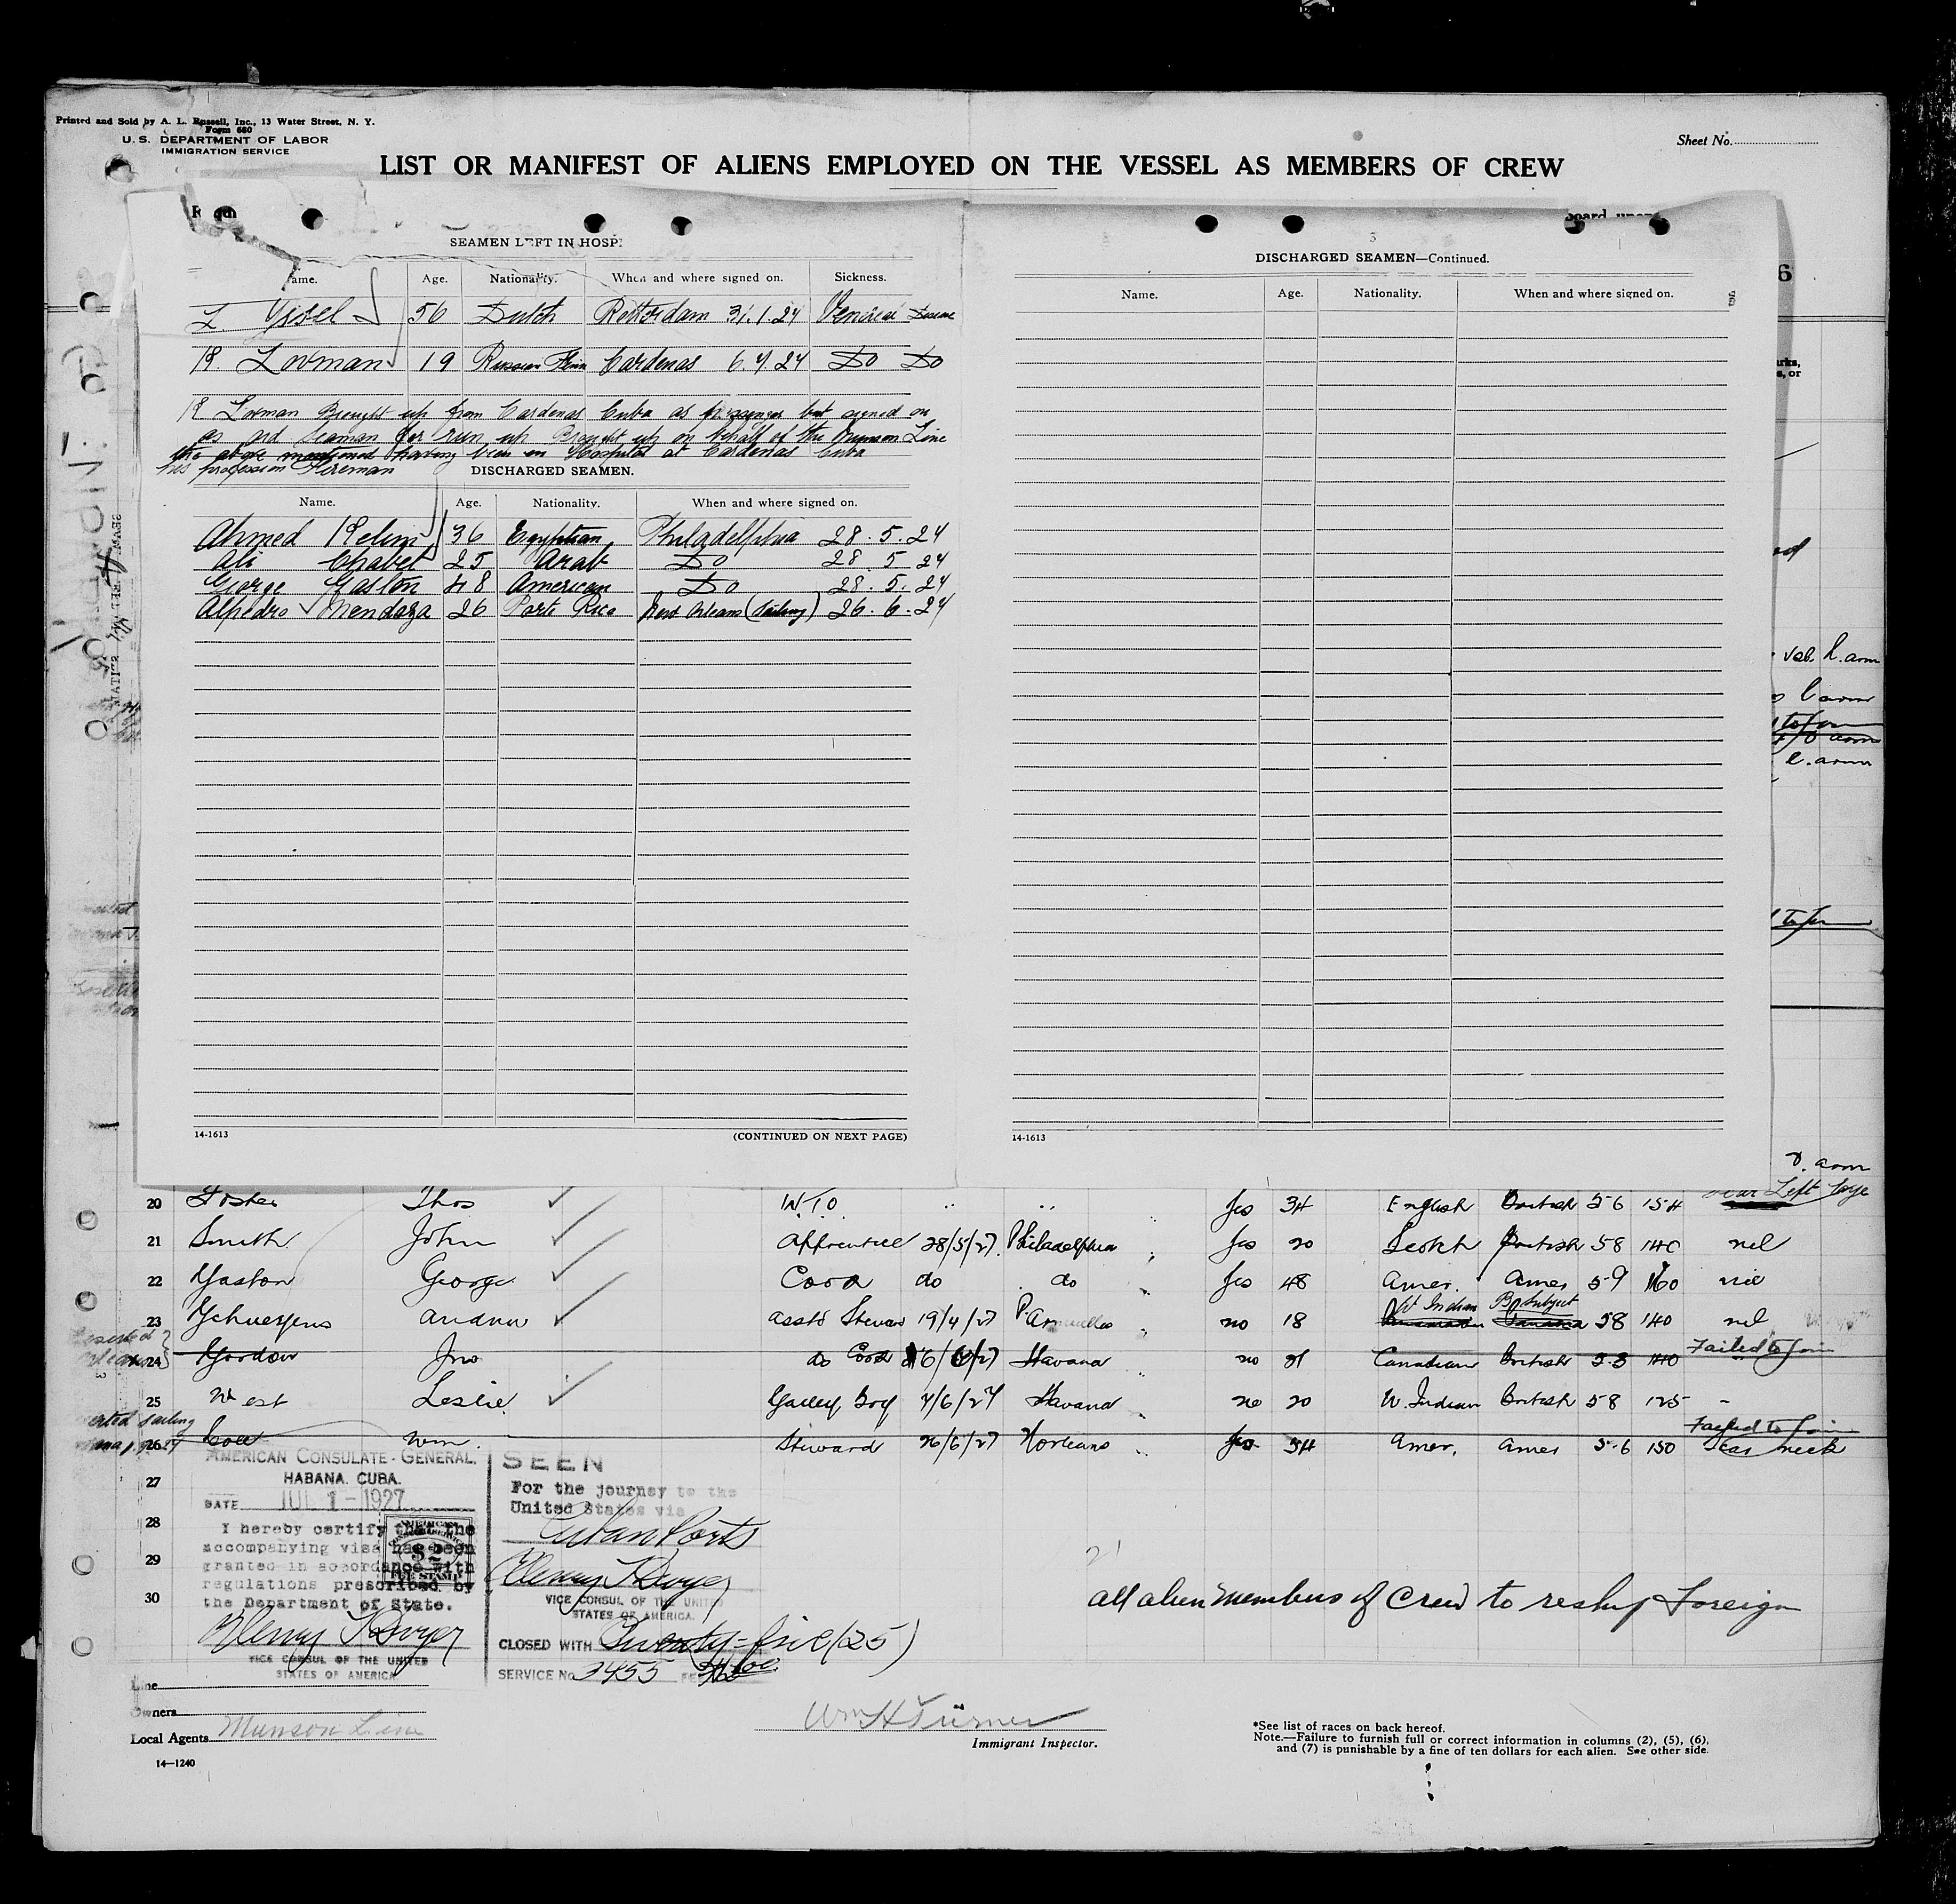 Printed and Sold by A. L. Russell, Inc., 13 Water Street, N. Y.
Form 680
U. S. DEPARTMENT OF LABOR
IMMIGRATION SERVICE
Sheet No.
LIST OR MANIFEST OF ALIENS EMPLOYED ON THE VESSEL AS MEMBERS OF CREW
board upon
SEAMEN LEFT IN HOSPI
ame. Age. Nationality. When and where signed on. Sickness.
56 Dutch Rotterdam 31.1.24 Disease
R. Lovman 19 Russian Finn Cardenas 6.7.24 Do Do
R Lovman Brought up from Cardenas Cuba as passenger but signed on
as ord Seaman for run up Brought up on behalf of the Munson Line
the above mentioned having been in Hospital at Cardenas Cuba
his profession Fireman
DISCHARGED SEAMEN.
Name. Age. Nationality. When and where signed on.
Ahmed Kelim 36 Egyptian Philadelphia 28.5.24
Ali Chabel 25 Arab Do 28.5 24
George Gaston 48 American Do 28.5.24
Alpedro Mendoza 26 Porto Rico New Orleans (Sailing) 26.6.24
14-1613
(CONTINUED ON NEXT PAGE)
DISCHARGED SEAMEN—Continued.
Name. Age. Nationality. When and where signed on.
14-1613
6
arks,
s, or
L. arm
arm
arm
arm
arm
20 Foster Thos W.T.O. " " " Yes 34 English British 5 6 154 scar Left
21 Smith John Apprentice 28/5/27 Philadelphia " Yes 20 Scotch British 5 8 140 nil
22 Gaston George Cook do do " Yes 48 Amer. Amer 5-9 160 nil
W Indian B. Subject
23 asst Steward 19/4/27 " no 18 5 8 140 nil
Failed to join
24 Gordon Jno do Cook Havana " no 21 Canadian British 140
25 West Leslie Galley Boy 7/6/27 Havana " no 20 W. Indian British 5 8 125 -
Failed to join
26 Wm. Steward 26/6/27 N orleans " Yes 54 Amer. Amer 5-6 150 Scar neck
27
28
29
30
AMERICAN CONSULATE-GENERAL.
HABANA. CUBA.
DATE JUL 1-1927
I hereby certify that the
accompanying visa has been
granted in accordance with
regulations prescribed by
the Department of State.
Henry T Dwyer
VICE CONSUL OF THE UNITED
STATES OF AMERICA
SEEN
For the journey to the
United States via
Cuban Ports
Henry T Dwyer
VICE CONSUL OF THE UNITED
STATES OF AMERICA.
CLOSED WITH Twenty-five (25)
SERVICE No 3455
all alien members of Crew to reship Foreign
Line
Owners
Local Agents Munson Line
14—1240
Wm H Turner
Immigrant Inspector.
*See list of races on back hereof.
Note.—Failure to furnish full or correct information in columns (2), (5), (6),
and (7) is punishable by a fine of ten dollars for each alien. See other side.